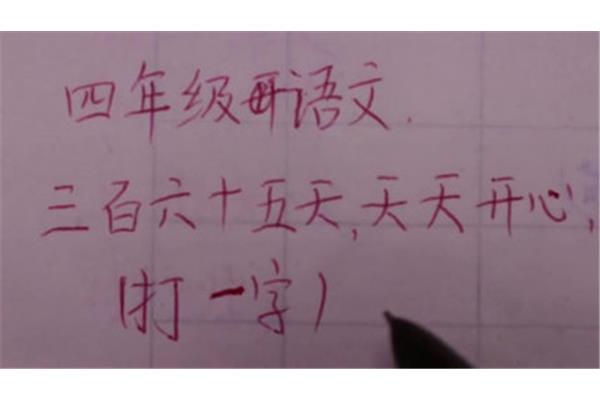 四年级语文.
三百六十五天,天天开心,
(打一字)